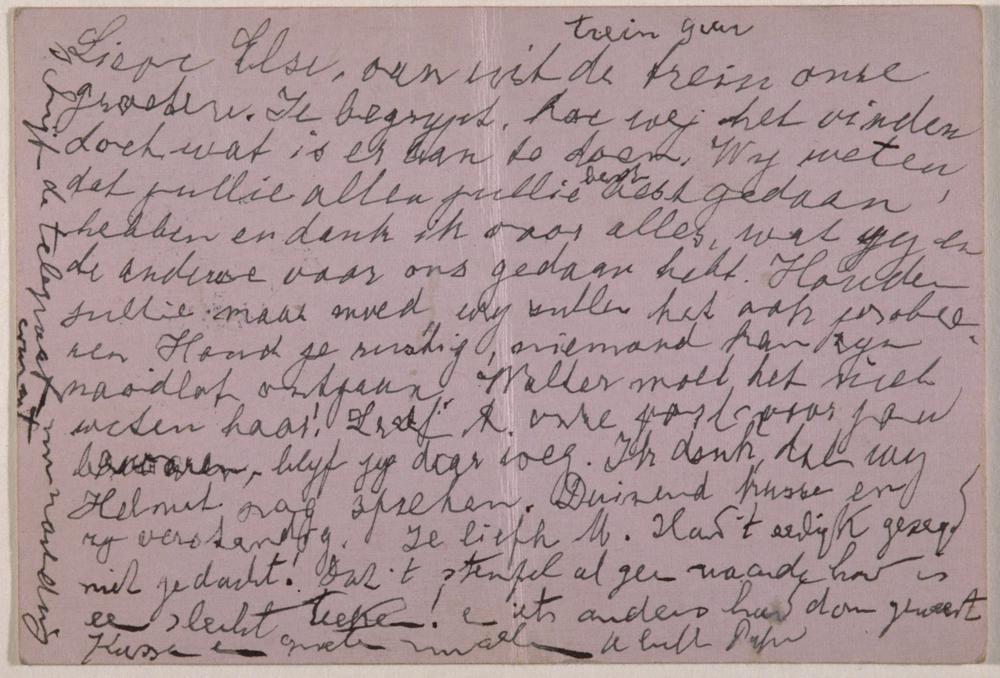 trein gaan
Lieve Else, van uit de trein onze
groeten. Je begrypt, hoe wy het vinden
doch wat is er aan te doen. Wy weten,
dat jullie allen jullie best best gedaan
hebben en dank ik voor alles, wat gy en
de andere voor ons gedaan hebt. Houden
jullie maar moed wy zullen het ook probee-
ren Houd je rustig, niemand kan zyn
noodlot ontgaan. Walter moet het niet
weten hoor! onze post voor jou
bewaren, blyf jy daar weg. Ik denk, dat wy
Helmut nog spreken. Duizend kusse en
zy verstandig. Je liefh M. Had 't eerlyk gezegd
niet gedacht! Dat 't stempel al gee waarde had is
ee slecht teeken! iets anders had dom geweest
Kusse
Schryf de telegraaf
courant